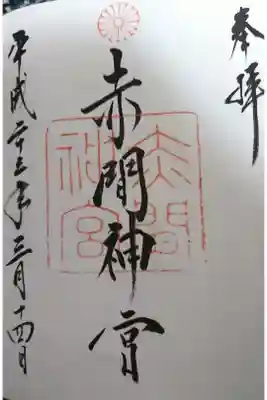 奉拝
赤間神宮
赤間神宮
平成二十三年三月十四日